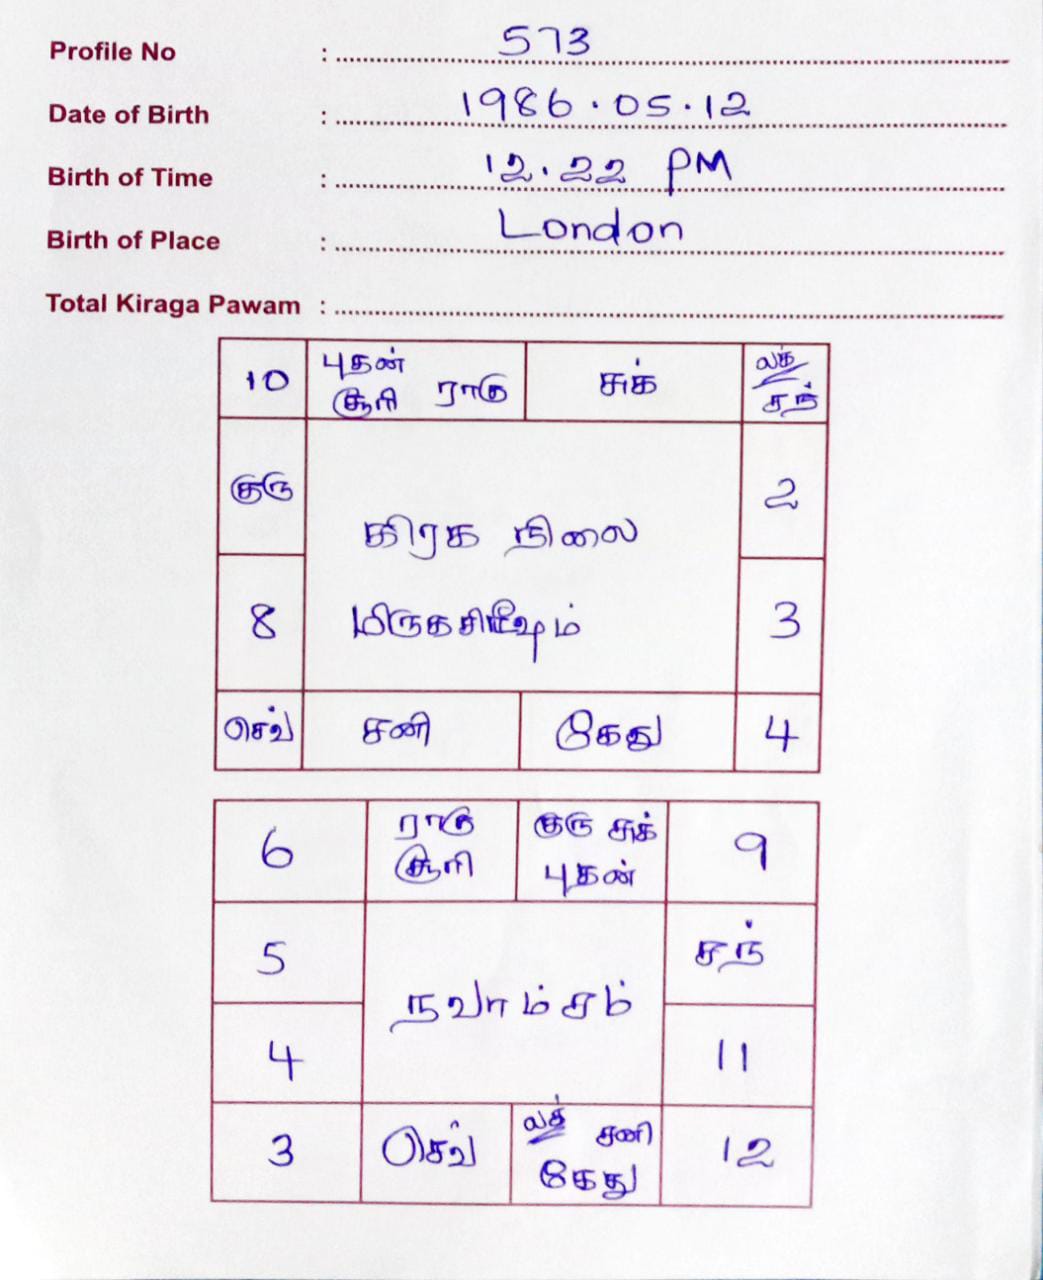 Profile No : 573
Date of Birth : 1986.05.12
Birth of Time : 12.22 PM
Birth of Place : London
Total Kiraga Pawam :
10 புதன் சூரி ராகு சுக் லக் சந்
குரு 2
கிரக நிலை
8 மிருகசிரீஷம் 3
செவ் சனி கேது 4
6 ராகு சூரி குரு சுக் புதன் 9
5 சந்
நவாம்சம்
4 11
3 செவ் லக் சனி கேது 12